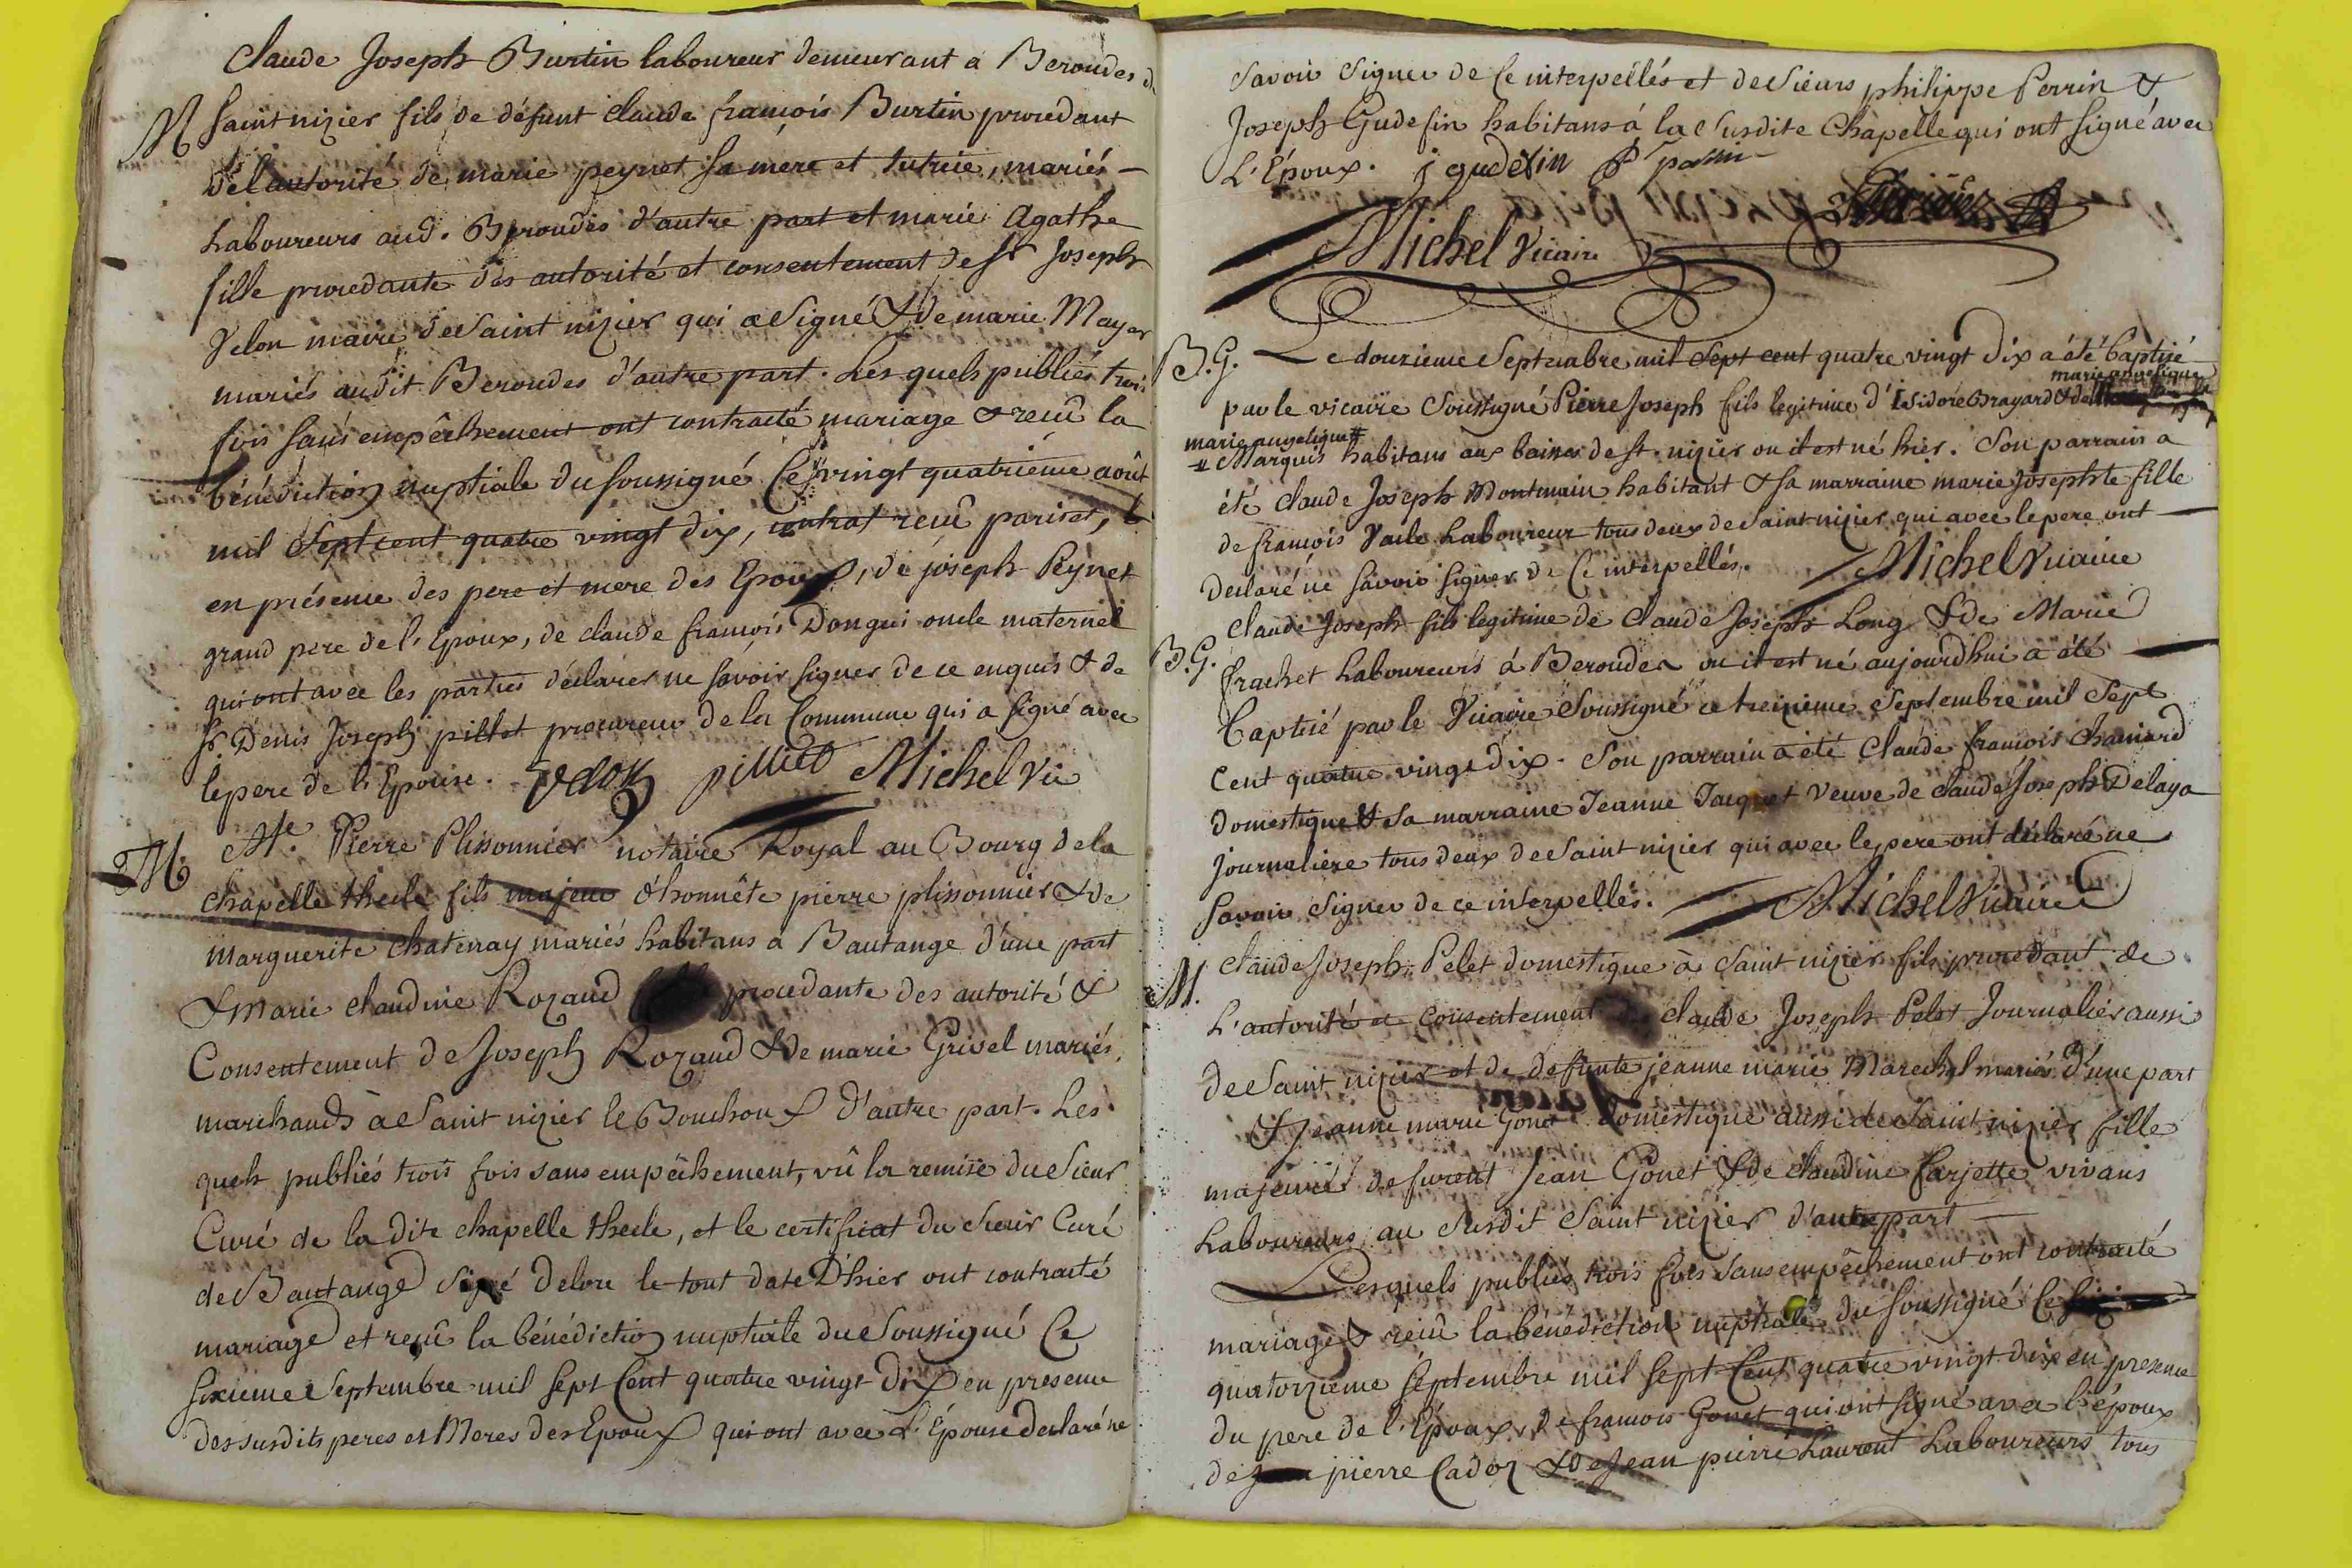 Claude Joseph Burtin laboureur demeurant a Beroudes de
M Saint nizier fils de défunt claude françois Burtin procedant
del'autorité de marie peynet sa mere et tutrice, mariés
Laboureurs aud. Beroudes d'autre part et marie Agathe
fille procedante des autorité et consentement de sr Joseph
Velon maire de Saint nizier qui a Signé & de marie Mayer
mariés audit Beroudes d'autre part. Les quels publiés trois
fois sans empêchement ont contracté mariage & reçû la
bénédiction nuptiale du soussigné Ce vingt quatrième août
mil Sept cent quatre vingt dix, contrat reçû pariset,
en présence des pere et mere des Epoux, de joseph Peynet
grand pere de l'Epoux, de claude françois Dongui oncle maternel
qui ont avec les parties déclarer ne savoir signer de ce enquis & de
sr Denis Joseph pillet procureur de la Commune qui a signé avec
le pere de l'Epouse. Velon pillet Michel Vic
M. Me. Pierre Plissonnier notaire Royal au Bourg de la
chapelle thecle fils majeur d'honnête pierre plissonnier & de
marguerite chatenay mariés habitans a Bantange d'une part
& Marie claudine Rozand procedante des autorité &
Consentement de Joseph Rozand & de marie Grivel mariés
marchands à Saint nizier le Bouchoux d'autre part. Les
quels publiés trois fois sans empêchement, vû la remise du Sieur
Curé de la dite chapelle thecle, et le certificat du Sieur Curé
de Bantange Signé Delore le tout daté D'hier ont contracté
mariage et reçû la bénédiction nuptiale du Soussigné Ce
sixieme Septembre mil sept Cent quatre vingt Dix en presence
des susdits peres et Meres des Epoux qui ont avec L'Épouse declaré ne
Savoir Signer de Ce interpellés et de Sieurs philippe Perrin &
Joseph Gudefin habitans á la Susdite Chapelle qui ont signé avec
L'Époux. j gudefin
Michel Vicaire
B.G. Le douzieme Septembre mil Sept cent quatre vingt Dix a été baptisé
marie angelique
par le vicaire Soussigné Pierre Joseph fils legitime d'Isidore Brayard & de
marie angelique #
# Marquis habitans aux baisses de st. nizier ou il est né hier. Son parrain a
été claude Joseph Montmain habitant & sa marraine marie Josephte fille
de françois Vacle Laboureur tous deux de Saint nizier qui avec le pere ont
declaré ne Savoir Signer de Ce interpellés. Michel Vicaire
Claude Joseph fils legitime de Claude Joseph Long & de Marie
B.G. frachet Laboureurs á Beroudes ou il est né aujourd'hui a été
baptisé par le Vicaire Soussigné ce treizieme Septembre mil Sept
Cent quatre vingt Dix. Son parrain a été Claude françois Chanard
domestique & sa marraine Jeanne Jacquet veuve de claude Joseph Delaya
journaliere tous deux de Saint nizier qui avec le pere ont déclaré ne
Savoir Signer de ce interpellés. Michel Vicaire
M. Claude Joseph Pelet domestique à Saint nizier fils procedant de
L'autorité et Consentement de claude Joseph Pelet Journalier aussi
de Saint nizier et de defunte jeanne marie Marechal mariés d'une part
& jeanne marie Gonet domestique aussi de Saint nizier fille
majeure de furent Jean Gonet & de claudine farjette vivans
Laboureurs au Susdit Saint nizier d'autre part
Lesquels publiés trois fois sans empêchement ont contracté
mariage & reçû la benediction nuptiale du Soussigné Ce
quatorzieme Septembre mil Sept Cent quatre vingt dix en presence
du pere de l'Epoux, de françois Gonet qui ont signé avec l'époux
de pierre Cadoz & de Jean pierre Laurent Laboureurs tous